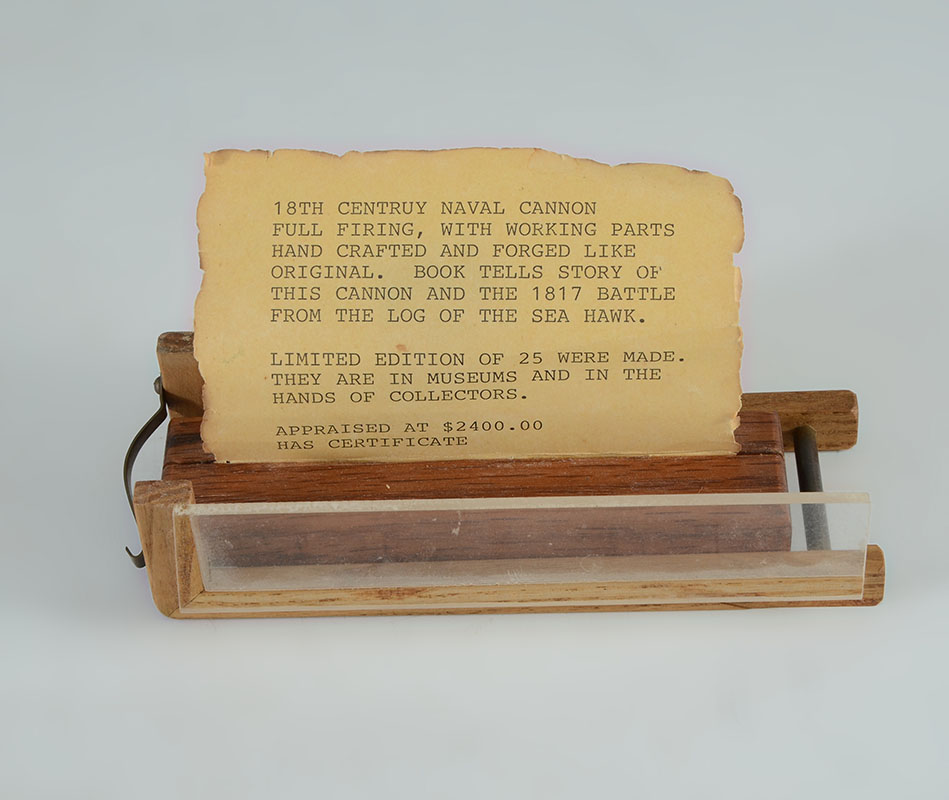 18TH CENTRUY NAVAL CANNON
FULL FIRING, WITH WORKING PARTS
HAND CRAFTED AND FORGED LIKE
ORIGINAL. BOOK TELLS STORY OF
THIS CANNON AND THE 1817 BATTLE
FROM THE LOG OF THE SEA HAWK.
LIMITED EDITION OF 25 WERE MADE.
THEY ARE IN MUSEUMS AND IN THE
HANDS OF COLLECTORS.
APPRAISED AT $2400.00
HAS CERTIFICATE